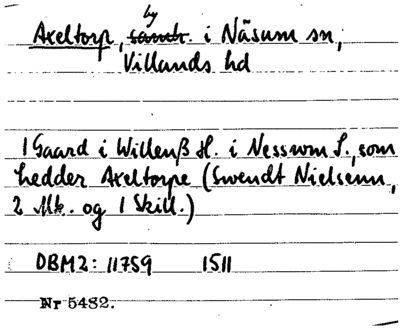 by
Axeltorp, samh. i Näsum sn,
Villands hd
1 Gaard i Willenß H. i Nesswm S., som
hedder Axeltorpe (Swendt Nielsenn,
2 Mk. og 1 Skill.)
DBM2: 11759 1511
Nr 5482.